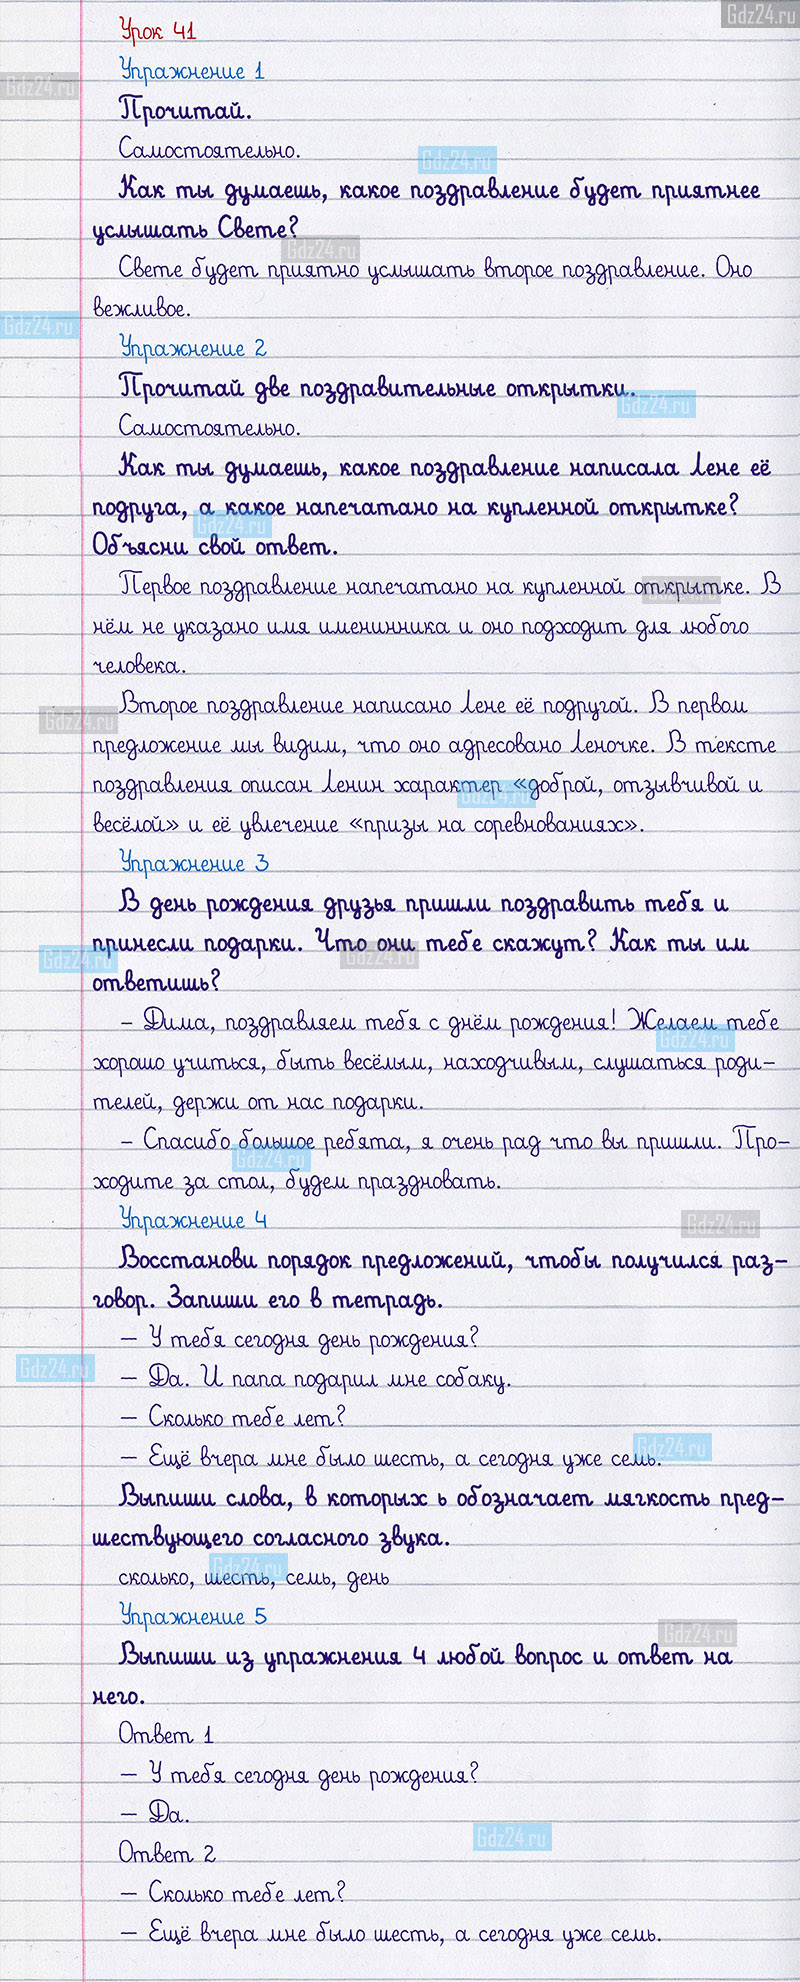 Gdz24.ru
Урок 41
Упражнение 1
Gdz24.ru
Прочитай.
Самостоятельно.
Gdz24.ru
Как ты думаешь, какое поздравление будет приятнее
услышать Свете?
Gdz24.ru
Свете будет приятно услышать второе поздравление. Оно
вежливое.
Gdz24.ru
Упражнение 2
Прочитай две поздравительные открытки.
Gdz24.ru
Самостоятельно.
Как ты думаешь, какое поздравление написала Лене её
подруга, а какое напечатано на купленной открытке?
Gdz24.ru
Объясни свой ответ.
Первое поздравление напечатано на купленной открытке. В
Gdz24.ru
нём не указано имя именинника и оно подходит для любого
человека.
Второе поздравление написано Лене её подругой. В первом
Gdz24.ru
предложение мы видим, что оно адресовано Леночке. В тексте
поздравления описан Ленин характер «доброй, отзывчивой и
Gdz24.ru
весёлой» и её увлечение «призы на соревнованиях».
Упражнение 3
В день рождения друзья пришли поздравить тебя и
принесли подарки. Что они тебе скажут? Как ты им
Gdz24.ru
Gdz24.ru
ответишь?
– Дима, поздравляем тебя с днём рождения! Желаем тебе
Gdz24.ru
хорошо учиться, быть весёлым, находчивым, слушаться роди-
телей, держи от нас подарки.
– Спасибо большое ребята, я очень рад что вы пришли. Про-
Gdz24.ru
ходите за стол, будем праздновать.
Упражнение 4
Gdz24.ru
Восстанови порядок предложений, чтобы получился раз-
говор. Запиши его в тетрадь.
— У тебя сегодня день рождения?
Gdz24.ru
— Да. И папа подарил мне собаку.
— Сколько тебе лет?
— Ещё вчера мне было шесть, а сегодня уже семь.
Gdz24.ru
Выпиши слова, в которых ь обозначает мягкость пред-
шествующего согласного звука.
Gdz24.ru
сколько, шесть, семь, день
Упражнение 5
Gdz24.ru
Выпиши из упражнения 4 любой вопрос и ответ на
него.
Ответ 1
— У тебя сегодня день рождения?
— Да.
Gdz24.ru
Ответ 2
— Сколько тебе лет?
— Ещё вчера мне было шесть, а сегодня уже семь.